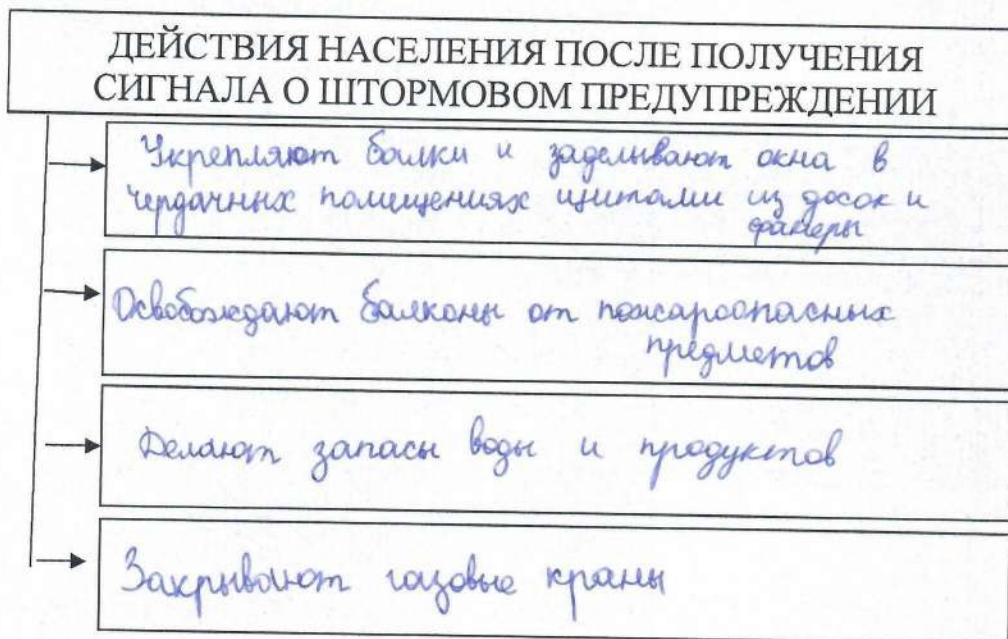 ДЕЙСТВИЯ НАСЕЛЕНИЯ ПОСЛЕ ПОЛУЧЕНИЯ
СИГНАЛА О ШТОРМОВОМ ПРЕДУПРЕЖДЕНИИ
Укрепляют балки и заделывают окна в
чердачных помещениях щитами из досок и
фанеры
Освобождают балконы от пожароопасных
предметов
Делают запасы воды и продуктов
Закрывают газовые краны